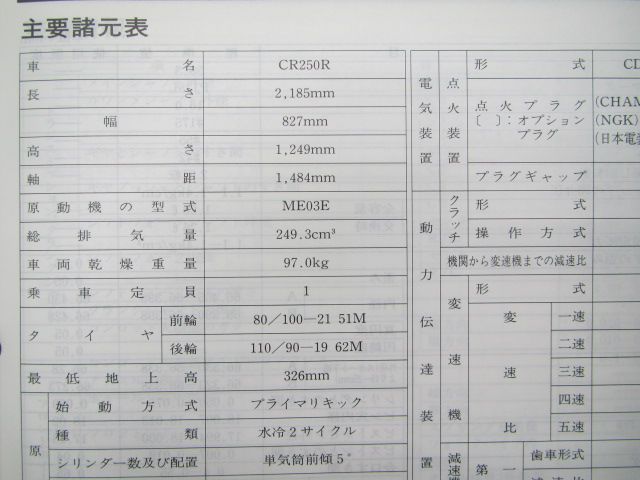 主要諸元表
車名 CR250R
長さ 2,185mm
幅 827mm
高さ 1,249mm
軸距 1,484mm
原動機の型式 ME03E
総排気量 249.3cm³
車両乾燥重量 97.0kg
乗車定員 1
タイヤ 前輪 80/100—21 51M
後輪 110/90—19 62M
最低地上高 326mm
原 始動方式 プライマリキック
種類 水冷2サイクル
シリンダー数及び配置 単気筒前傾5°
電気装置 点火装置 形式 CD
点火プラグ (CHAM
〔 〕:オプション (NGK)
プラグ (日本電装
プラグギャップ
動力伝達装置 クラッチ 形式
操作方式
機関から変速機までの減速比
変速機 形式
変速比 一速
二速
三速
四速
五速
減速機 第一 歯車形式
減速比